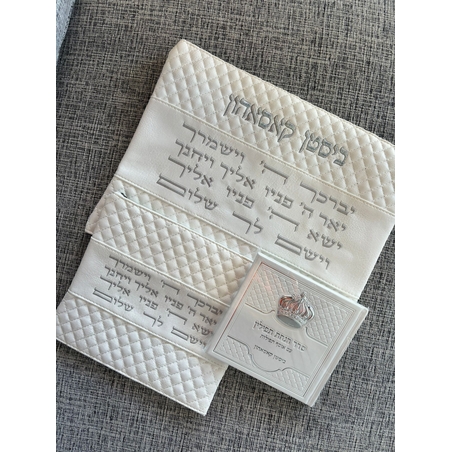 ניסטן קאסאדון
יברכך ה' וישמרך
יאר ה' פניו אליך ויחנך
ישא ה' פניו אליך
וישם לך שלום
יברכך ה' וישמרך
יאר ה' פניו אליך ויחנך
ישא ה' פניו אליך
וישם לך שלום
סדר הנחת תפילין
ניסטן קאסאדון